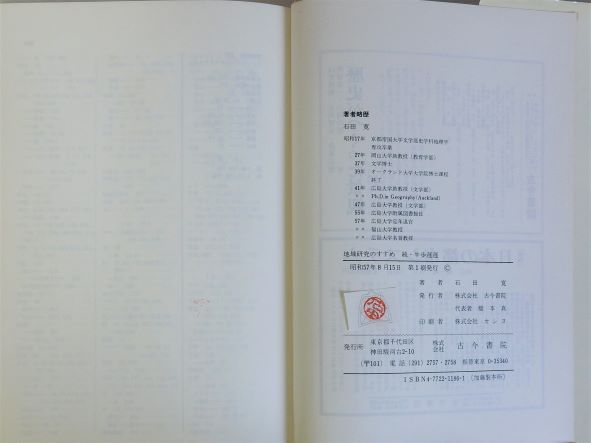 著者略歴
石田 寛
昭和17年 京都帝国大学文学部史学科地理学
専攻卒業
27年 岡山大学助教授（教育学部）
37年 文学博士
39年 オークランド大学大学院博士課程
終了
41年 広島大学助教授（文学部）
〃 Ph.D.in Geography(Auckland)
47年 広島大学教授（文学部）
55年 広島大学附属図書館長
57年 広島大学定年退官
〃 福山大学教授
〃 広島大学名誉教授
地域研究のすすめ 続・牛歩遅遅
昭和57年8月15日 第1刷発行 ©
著者 石田寛
発行者 株式会社 古今書院
代表者 橋本真
印刷者 株式会社 カシヨ
発行所 東京都千代田区神田駿河台2-10 株式会社 古今書院
(〒101) 電話 (291) 2757・2758 振替東京 0-35340
ISBN4-7722-1186-1 (加藤製本所)